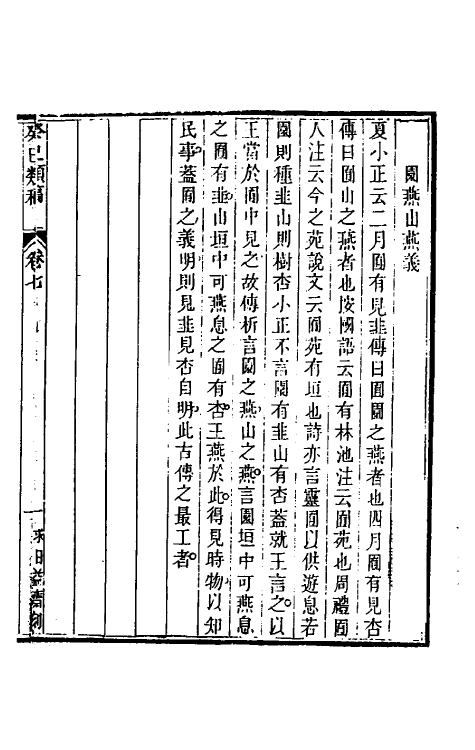 園燕山燕義
夏小正云二月囿有見韭傳曰囿園之燕者也四月囿有見杏
傳曰囿山之燕者也按國語云囿有林池注云囿苑也周禮囿
人注云今之苑說文云囿苑有垣也詩亦言靈囿以供遊息若
園則種韭山則樹杏小正不言園有韭山有杏蓋就王言之以
王當於囿中見之故傳析言園之燕山之燕言園垣中可燕息
之囿有韭山垣中可燕息之囿有杏王燕於此得見時物以知
民事蓋囿之義明則見韭見杏自明此古傳之最工者
癸巳類稿
卷七
求日益齋刻